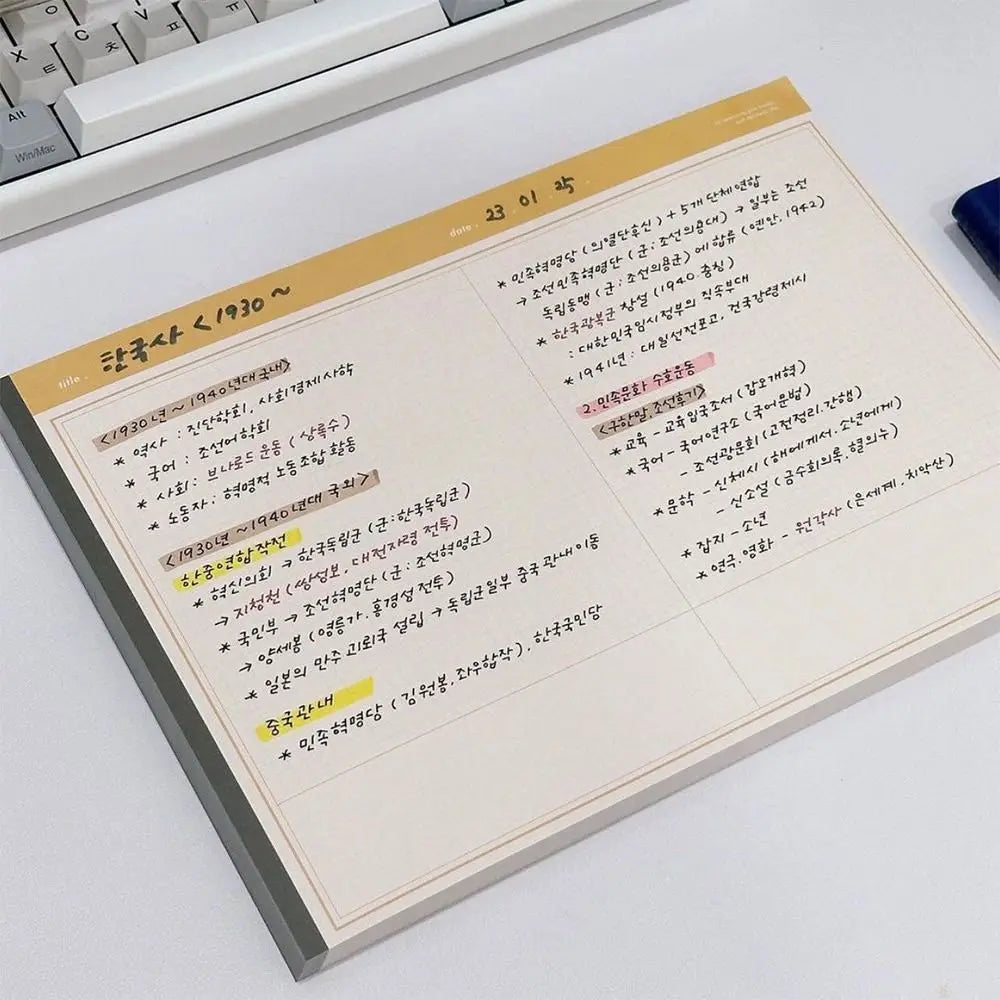 ㅇ
ㅊ
ㅍ
ㅠ
X
ㅌ
C
Alt
Win/Mac
title .
한국사 <1930 ~
date .
23 01
<1930년 ~ 1940년대 국내>
* 역사 : 진단학회, 사회경제사학
* 국어 : 조선어학회
* 사회 : 브나로드 운동 (상록수)
* 노동자 : 혁명적 노동조합 활동
<1930년 ~ 1940년대 국외>
한중연합작전
* 혁신의회 → 한국독립군 (군:한국독립군)
→ 지청천 (쌍성보, 대전자령 전투)
* 국민부 → 조선혁명단 (군 : 조선혁명군)
→ 양세봉 (영릉가, 흥경성 전투)
* 일본의 만주 괴뢰국 설립 → 독립군일부 중국 관내 이동
중국관내
* 민족혁명당 (김원봉, 좌우합작), 한국국민당
* 민족혁명당 (의열단후신) + 5개 단체 연합
→ 조선민족혁명단 (군 : 조선의용대) → 일부는 조선
독립동맹 (군 : 조선의용군) 에 합류 (옌안, 1942)
* 한국광복군 창설 (1940. 충칭)
: 대한민국임시정부의 직속부대
* 1941년 : 대일선전포고, 건국강령제시
2. 민족문화 수호운동
<구한말, 조선후기>
* 교육 - 교육입국조서 (갑오개혁)
* 국어 - 국어연구소 (국어문법)
- 조선광문회 (고전정리, 간행)
* 문학 - 신체시 (해에게서 소년에게)
- 신소설 (금수회의록, 혈의누)
* 잡지 - 소년
* 연극, 영화 - 원각사 (은세계, 치악산)